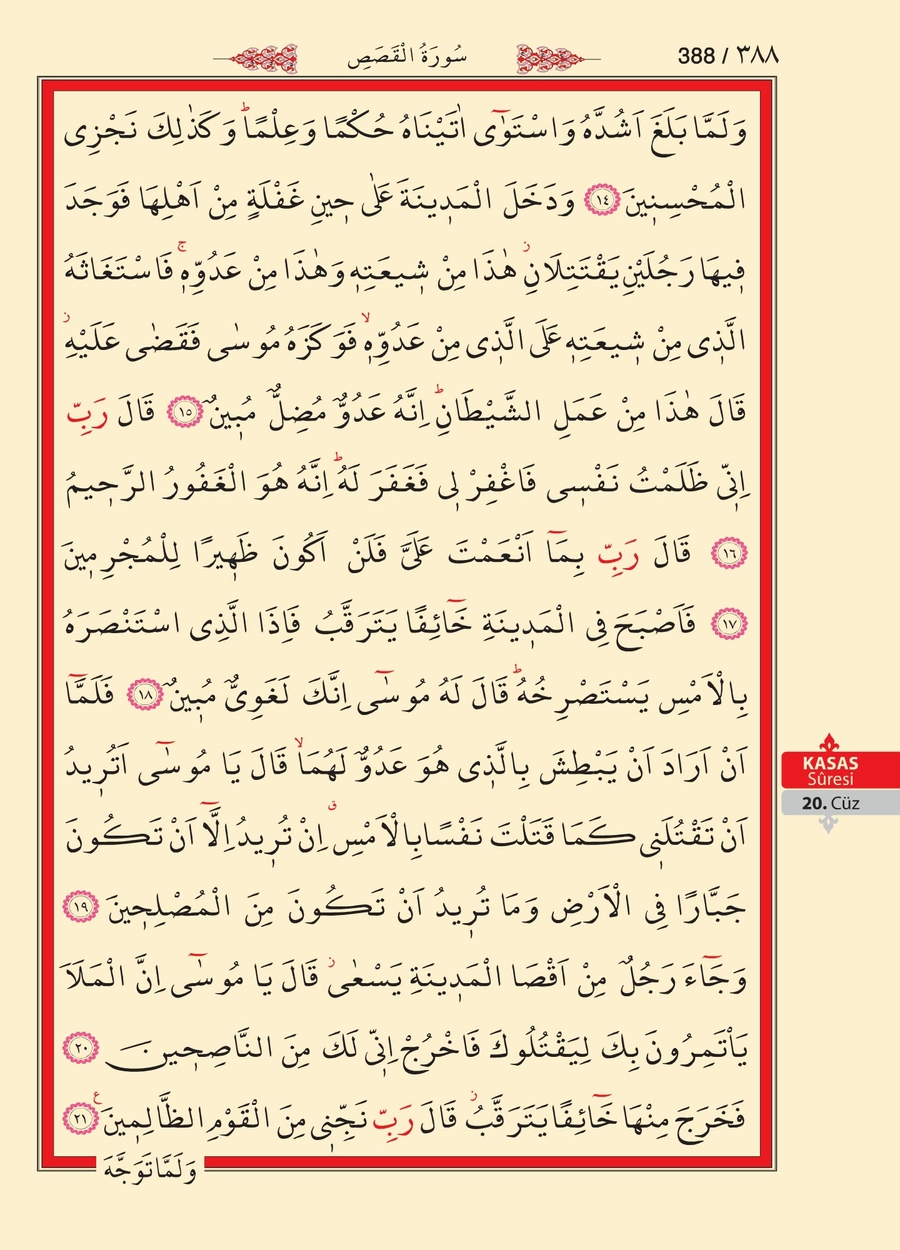 سُورَةُ الْقَصَصِ
388 / ٣٨٨
وَلَمَّا بَلَغَ اَشُدَّهُ وَاسْتَوٰٓى اٰتَيْنَاهُ حُكْمًا وَعِلْمًاۜ وَكَذٰلِكَ نَجْزِى
الْمُحْسِن۪ينَ ﴿١٤﴾ وَدَخَلَ الْمَد۪ينَةَ عَلٰى ح۪ينِ غَفْلَةٍ مِنْ اَهْلِهَا فَوَجَدَ
ف۪يهَا رَجُلَيْنِ يَقْتَتِلَانِۘ هٰذَا مِنْ ش۪يعَتِه۪ وَهٰذَا مِنْ عَدُوِّه۪ۚ فَاسْتَغَاثَهُ
الَّذ۪ى مِنْ ش۪يعَتِه۪ عَلَى الَّذ۪ى مِنْ عَدُوِّه۪ۙ فَوَكَزَهُ مُوسٰى فَقَضٰى عَلَيْهِۘ
قَالَ هٰذَا مِنْ عَمَلِ الشَّيْطَانِۜ اِنَّهُ عَدُوٌّ مُضِلٌّ مُب۪ينٌ ﴿١٥﴾ قَالَ رَبِّ
اِنّ۪ى ظَلَمْتُ نَفْس۪ى فَاغْفِرْ ل۪ى فَغَفَرَ لَهُۜ اِنَّهُ هُوَ الْغَفُورُ الرَّح۪يمُ
﴿١٦﴾ قَالَ رَبِّ بِمَٓا اَنْعَمْتَ عَلَىَّ فَلَنْ اَكُونَ ظَه۪يرًا لِلْمُجْرِم۪ينَ
﴿١٧﴾ فَاَصْبَحَ فِى الْمَد۪ينَةِ خَٓائِفًا يَتَرَقَّبُ فَاِذَا الَّذِى اسْتَنْصَرَهُ
بِالْاَمْسِ يَسْتَصْرِخُهُۜ قَالَ لَهُ مُوسٰٓى اِنَّكَ لَغَوِىٌّ مُب۪ينٌ ﴿١٨﴾ فَلَمَّٓا
اَنْ اَرَادَ اَنْ يَبْطِشَ بِالَّذ۪ى هُوَ عَدُوٌّ لَهُمَاۙ قَالَ يَا مُوسٰٓى اَتُر۪يدُ
اَنْ تَقْتُلَن۪ى كَمَا قَتَلْتَ نَفْسًا بِالْاَمْسِۗ اِنْ تُر۪يدُ اِلَّٓا اَنْ تَكُونَ
جَبَّارًا فِى الْاَرْضِ وَمَا تُر۪يدُ اَنْ تَكُونَ مِنَ الْمُصْلِح۪ينَ ﴿١٩﴾
وَجَٓاءَ رَجُلٌ مِنْ اَقْصَا الْمَد۪ينَةِ يَسْعٰىۘ قَالَ يَا مُوسٰٓى اِنَّ الْمَلَاَ
يَأْتَمِرُونَ بِكَ لِيَقْتُلُوكَ فَاخْرُجْ اِنّ۪ى لَكَ مِنَ النَّاصِح۪ينَ ﴿٢٠﴾
فَخَرَجَ مِنْهَا خَٓائِفًا يَتَرَقَّبُۘ قَالَ رَبِّ نَجِّن۪ى مِنَ الْقَوْمِ الظَّالِم۪ينَ۟ ﴿٢١﴾
وَلَمَّا تَوَجَّهَ
KASAS
Sûresi
20. Cüz